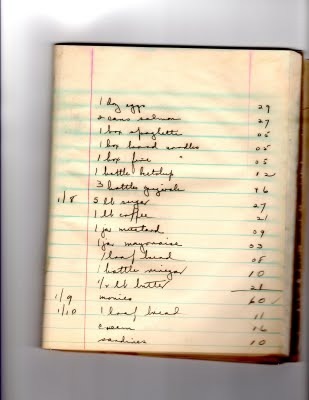 1 doz eggs 29
2 cans salmon 27
1 box spaghetti 05
1 box broad noodles 05
1 box 05
1 bottle ketchup 12
3 bottles 46
1/8 5 lb sugar 27
1 lb coffee 21
1 jar mustard 09
1 jar mayonaise 03
1 loaf bread 08
1 bottle vinegar 10
1/2 lb butter 21
1/9 movies 60
1/10 1 loaf bread 11
cream 16
sardines 10